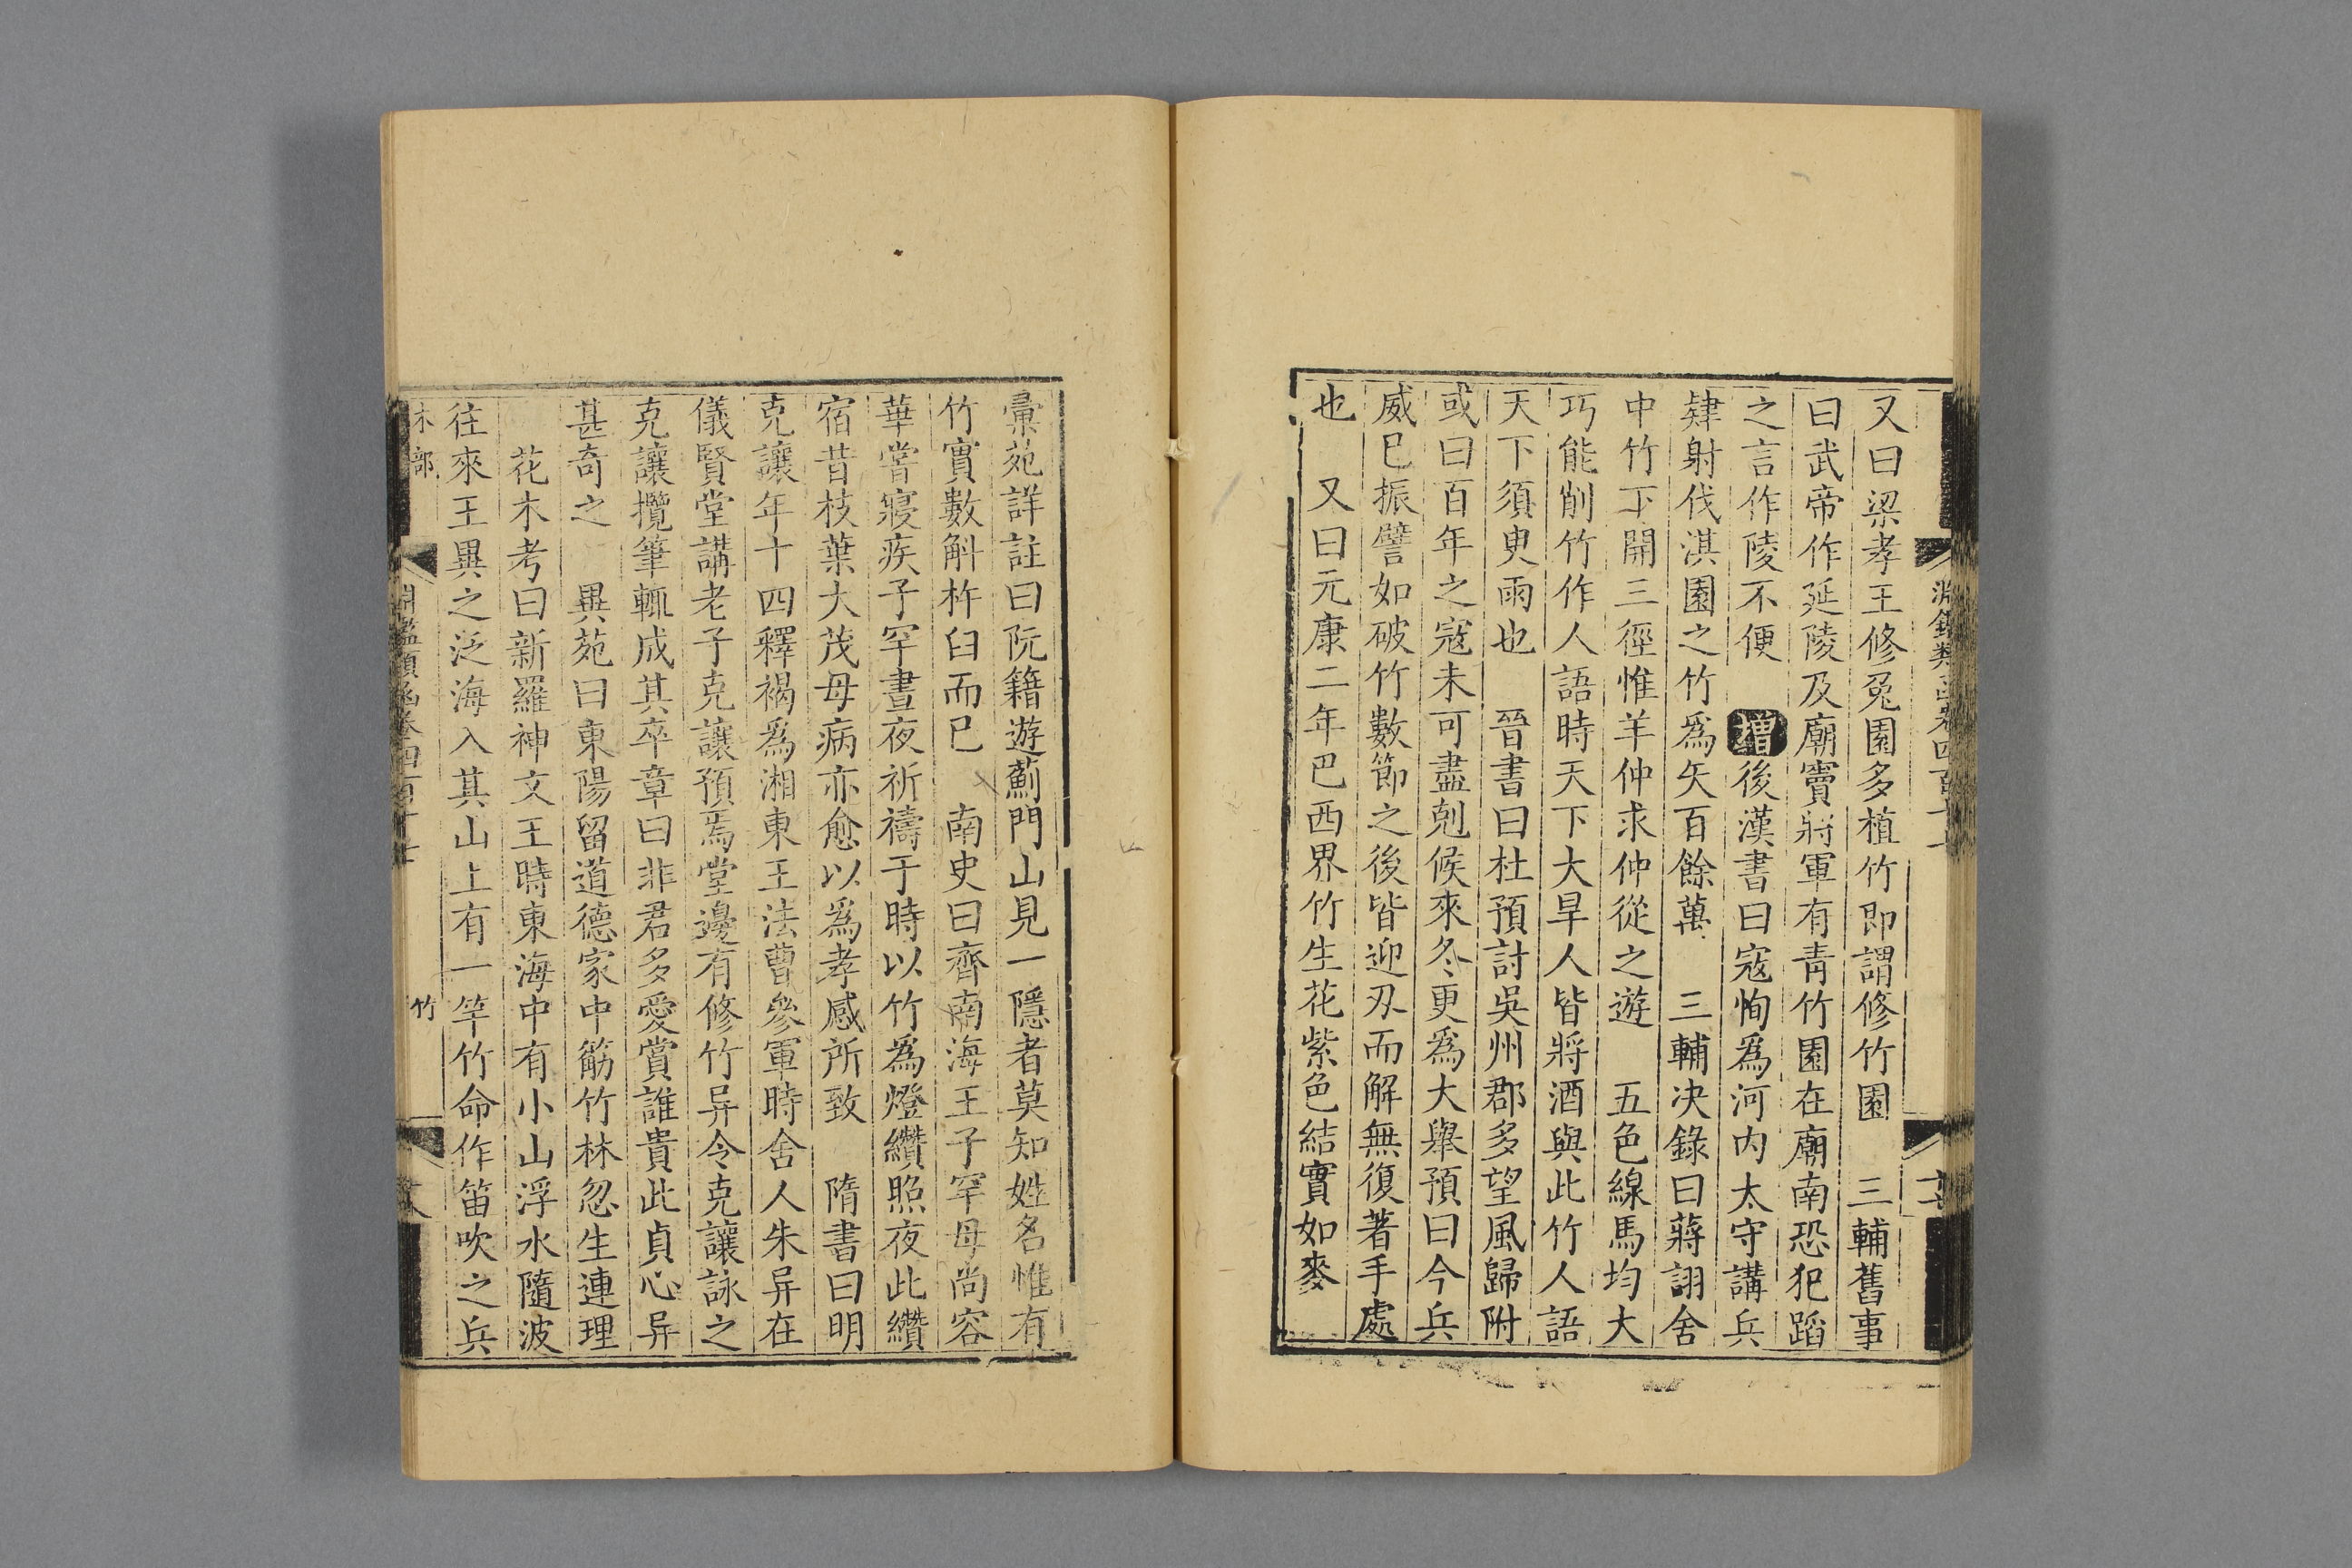 又曰梁孝王修兔園多植竹即謂修竹園　三輔舊事
曰武帝作延陵及廟竇將軍有青竹園在廟南恐犯蹈
之言作陵不便　增後漢書曰寇恂爲河内太守講兵
肄射伐淇園之竹爲矢百餘萬　三輔决錄曰蔣詡舍
中竹下開三徑惟羊仲求仲從之遊　五色線馬均大
巧能削竹作人語時天下大旱人皆將酒與此竹人語
天下須臾雨也　晉書曰杜預討吳州郡多望風歸附
或曰百年之寇未可盡剋候來冬更爲大舉預曰今兵
威已振譬如破竹數節之後皆迎刃而解無復著手處
也　又曰元康二年巴西界竹生花紫色結實如麥
彙苑詳註曰阮籍遊薊門山見一隱者莫知姓名惟有
竹實數斛杵臼而已　南史曰齊南海王子罕母尚容
華嘗寢疾子罕晝夜祈禱于時以竹爲燈纘照夜此纘
宿昔枝葉大茂母病亦愈以爲孝感所致　隋書曰明
克讓年十四釋褐爲湘東王法曹參軍時舍人朱异在
儀賢堂講老子克讓預焉堂邊有修竹异令克讓詠之
克讓攬筆輒成其卒章曰非君多愛賞誰貴此貞心异
甚奇之　異苑曰東陽留道德家中筋竹林忽生連理
花木考曰新羅神文王時東海中有小山浮水隨波
往來王異之泛海入其山上有一竿竹命作笛吹之兵
木部　淵鑑類函卷四百十七　竹　十八